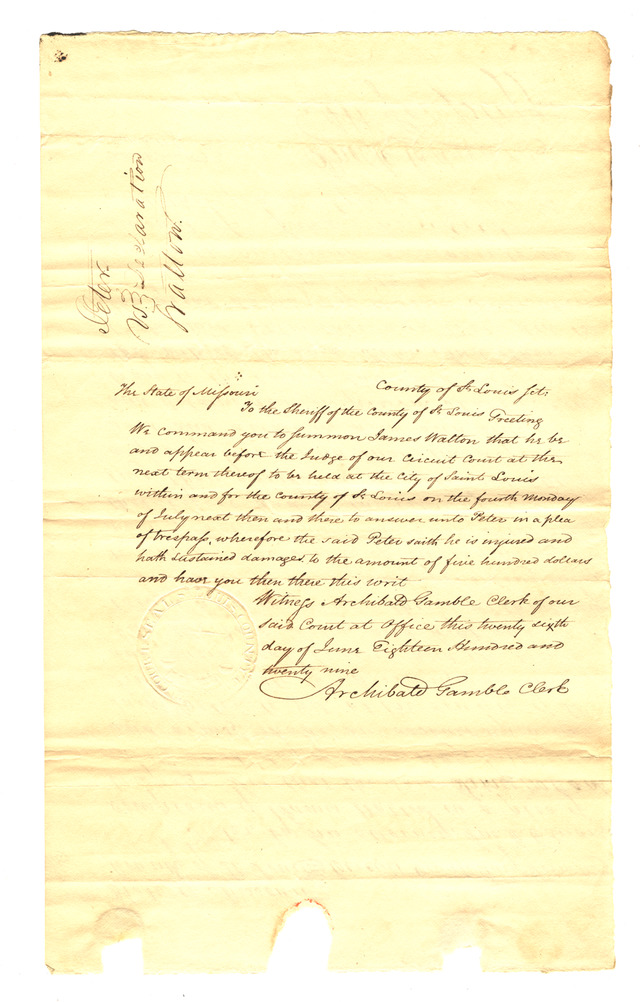 Peter
vs } Declaration
Walton.
The State of Missouri County of St Louis Sct:
To the Sheriff of the County of St Louis Greeting
We command you to summon James Walton that he be
and appear before the Judge of our Circuit Court at the
next term thereof to be held at the City of Saint Louis
within and for the County of St Louis on the fourth Monday
of July next then and there to answer unto Peter in a plea
of trespass, wherefore the said Peter saith he is injured and
hath sustained damages to the amount of five hundred dollars
and have you then there this writ
Witness Archibald Gamble Clerk of our
said Court at Office this twenty sixth
day of June Eighteen Hundred and
twenty nine
Archibald Gamble Clerk